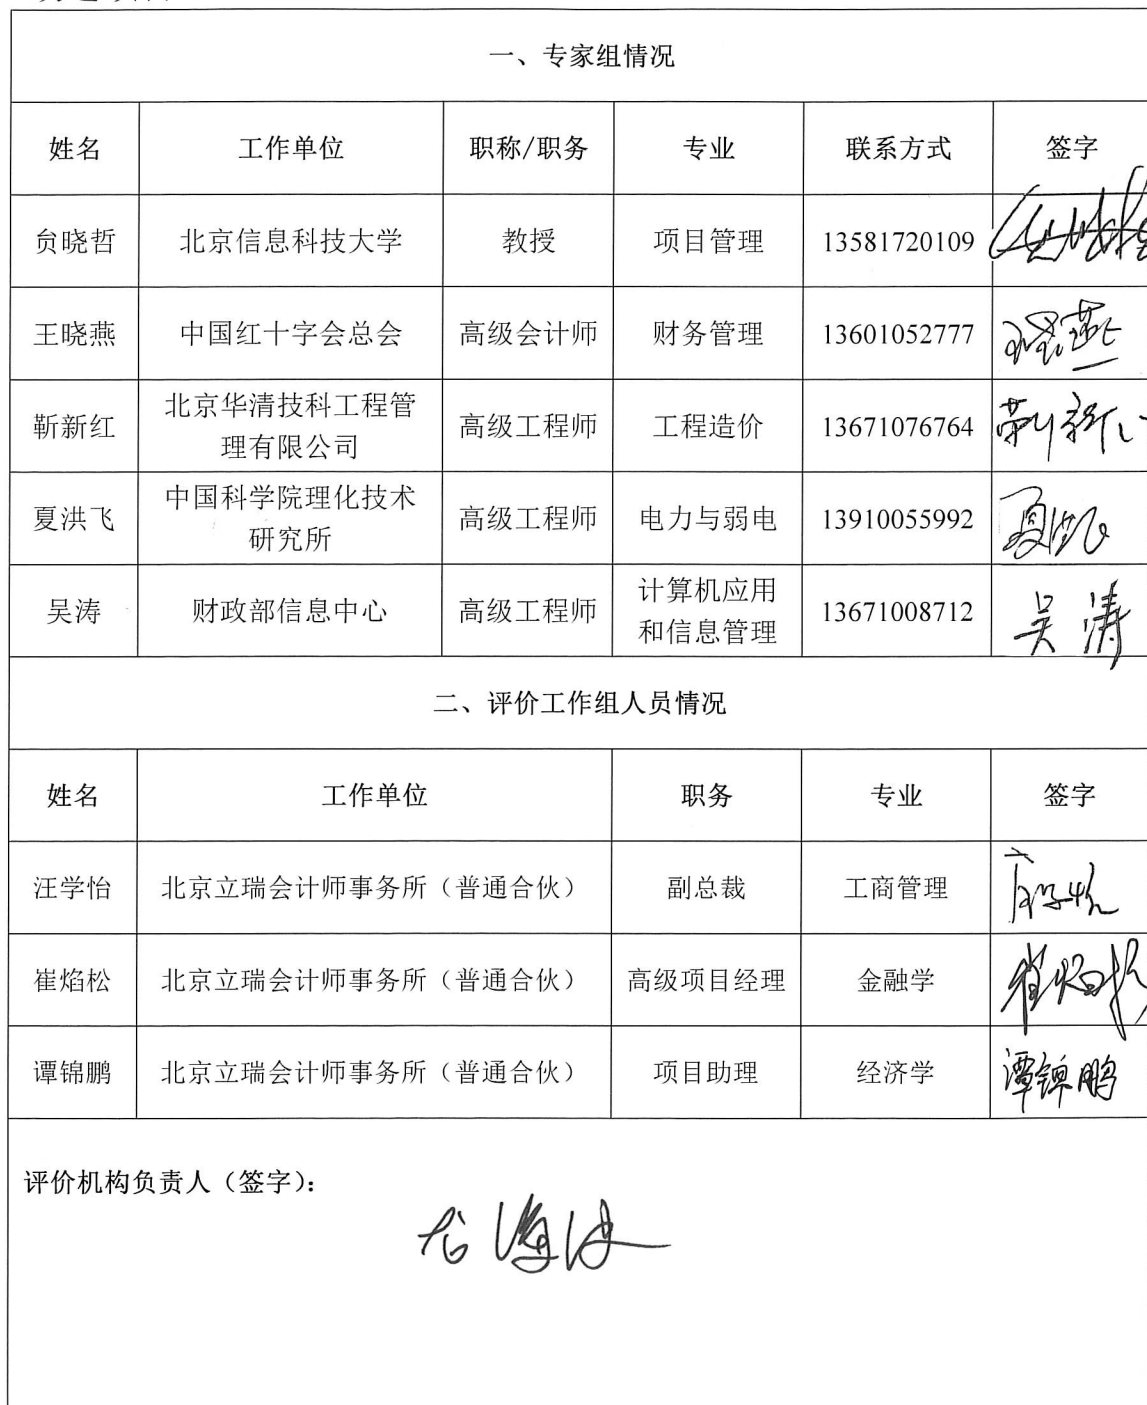 一、专家组情况
姓名 工作单位 职称/职务 专业 联系方式 签字
贠晓哲 北京信息科技大学 教授 项目管理 13581720109
王晓燕 中国红十字会总会 高级会计师 财务管理 13601052777 王晓燕
靳新红 北京华清技科工程管 高级工程师 工程造价 13671076764 靳新红
理有限公司
夏洪飞 中国科学院理化技术 高级工程师 电力与弱电 13910055992 夏洪飞
研究所
吴涛 财政部信息中心 高级工程师 计算机应用 13671008712 吴涛
和信息管理
二、评价工作组人员情况
姓名 工作单位 职务 专业 签字
汪学怡 北京立瑞会计师事务所（普通合伙） 副总裁 工商管理
崔焰松 北京立瑞会计师事务所（普通合伙） 高级项目经理 金融学 崔焰松
谭锦鹏 北京立瑞会计师事务所（普通合伙） 项目助理 经济学 谭锦鹏
评价机构负责人（签字）：